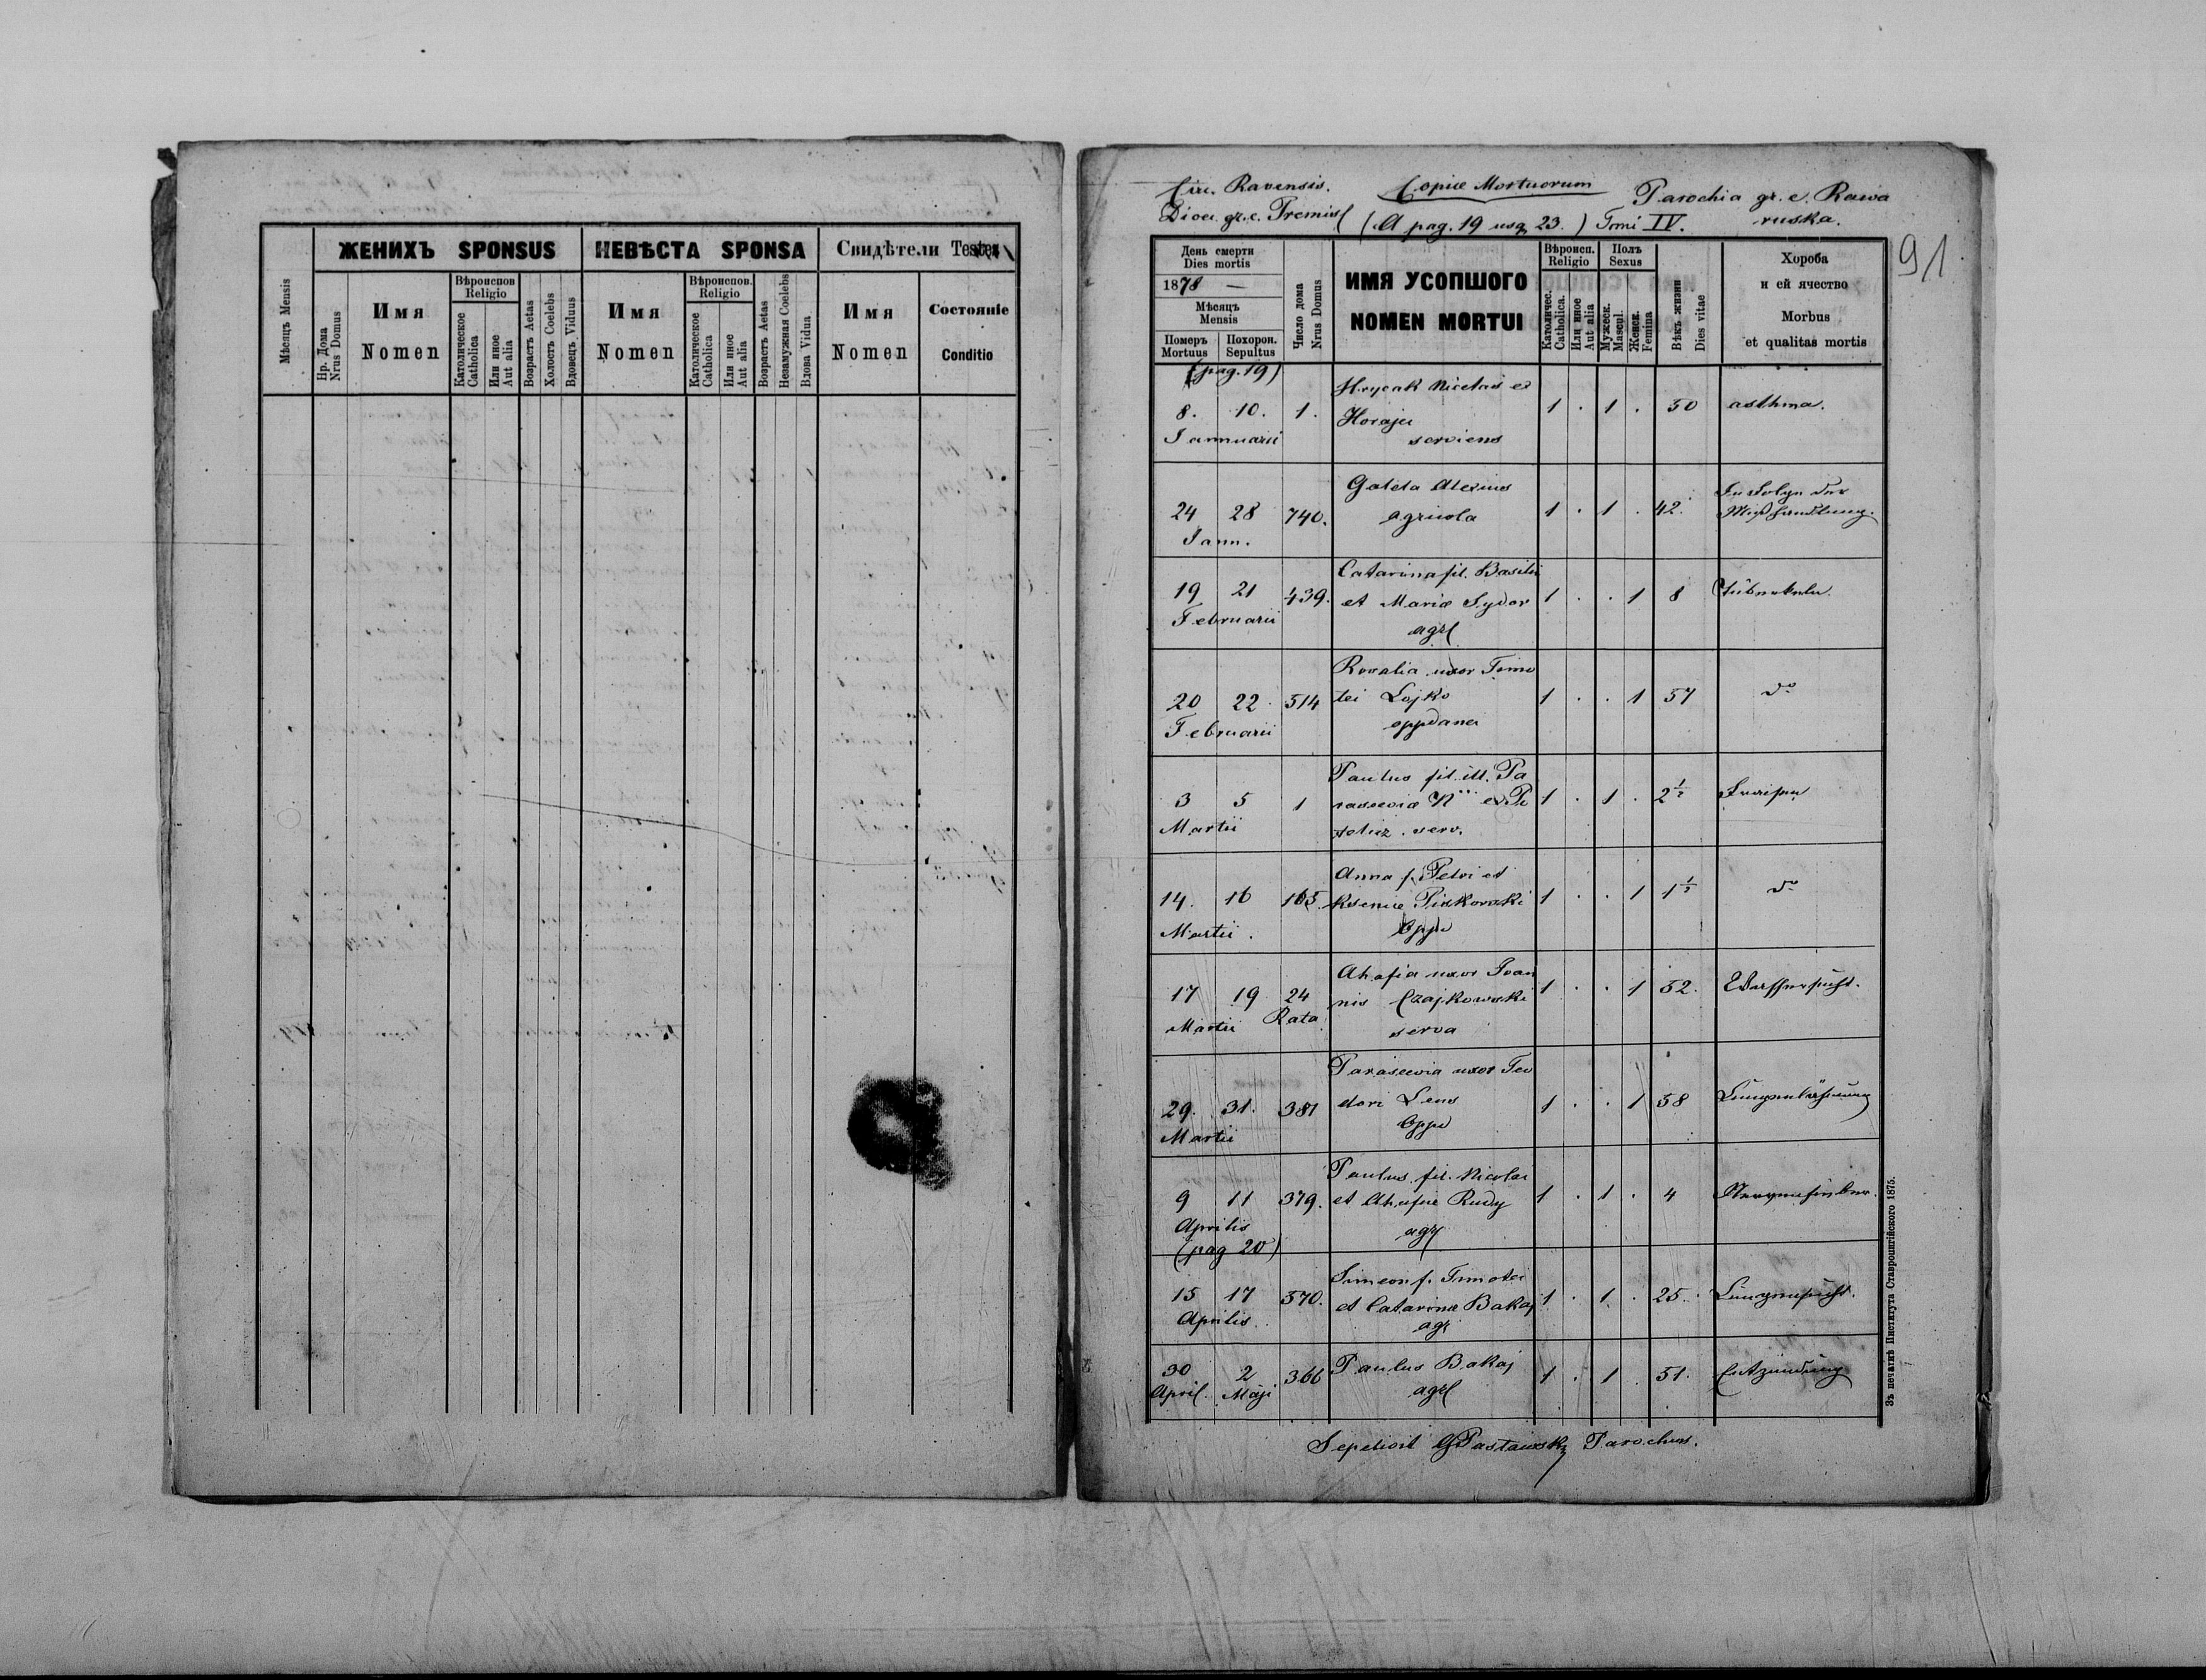 ЖЕНИХЪ SPONSUS
НЕВѢСТА SPONSA
Свидѣтели Testes
Мѣсяцъ Mensis
Нр. Дома
Nrus Domus
Имя
Nomen
Вѣроиспов
Religio
Католическое
Catholica
Или иное
Aut alia
Возрастъ Aetas
Холостъ Coelebs
Вдовецъ Viduus
Имя
Nomen
Вѣроиспов.
Religio
Католическое
Catholica
Или иное
Aut alia
Возрастъ Aetas
Незамужная Coelebs
Вдова Vidua
Имя
Nomen
Состояніе
Conditio
Cir. Ravensis.
Copiæ Mortuorum
Parochia gr. c. Rawa
Dioec. gr. c. Premisl
(A pag. 19 usq 23.) Tomi IV.
ruska.
91
День смерти
Dies mortis
1878 —
Мѣсяцъ
Mensis
Померъ
Mortuus
Похорон.
Sepultus
Число дома
Nrus Domus
ИМЯ УСОПШОГО
NOMEN MORTUI
Вѣроисп.
Religio
Католичес.
Catholica.
Или иное
Aut alia
Полъ
Sexus
Мужеск.
Mascul.
Женск.
Femina
Вѣкъ жизни
Dies vitae
Хороба
и ей ячество
Morbus
et qualitas mortis
(pag. 19)
Hrycak Nicetas ex
8. 10. 1. Horajec 1 . 1 . 50 asthma.
Jannuarii serviens
Galeta Alexius In Folge der
24 28 740. agricola 1 . 1 . 42. Mißhandlung.
Jann.
Catarina fil. Basilii
19 21 439. et Mariæ Sydor 1 . . 1 8
Februarii agrl
Rosalia uxor Timo
20 22 514 tei Lojko 1 . . 1 57 do
Februarii oppdanei
Paulus fil. ill. Pa
3 5 1 rasceviæ N''' ex 1 . 1 . 2½
Martii serv.
Anna f. Petri et
14. 16 165. Kseniæ 1 . . 1 1½ do
Martii. Oppd
Ahafia uxor Joan
17 19 24 nis Czajkowski 1 . . 1 52. Wassersucht.
Martii Rata serva
Parascevia uxor Teo
29. 31. 381 dori Lens 1 . . 1 58 Lungenlähmung
Martii Oppd
Paulus fil. Nicolai
9 11 379. et Ahafiæ Rudy 1 . 1 . 4
Aprilis agr
(pag 20)
Simeon f. Timotei
15 17 570. et Catarinæ Bakaj 1 . 1 . 25. Lungensucht.
Aprilis agr
30 2 366 Paulus Bakaj 1 . 1 . 51. Entzündung
April. Maji agrl
Sepelivit Parochus.
Зъ печатнѣ Института Ставропигійского 1875.